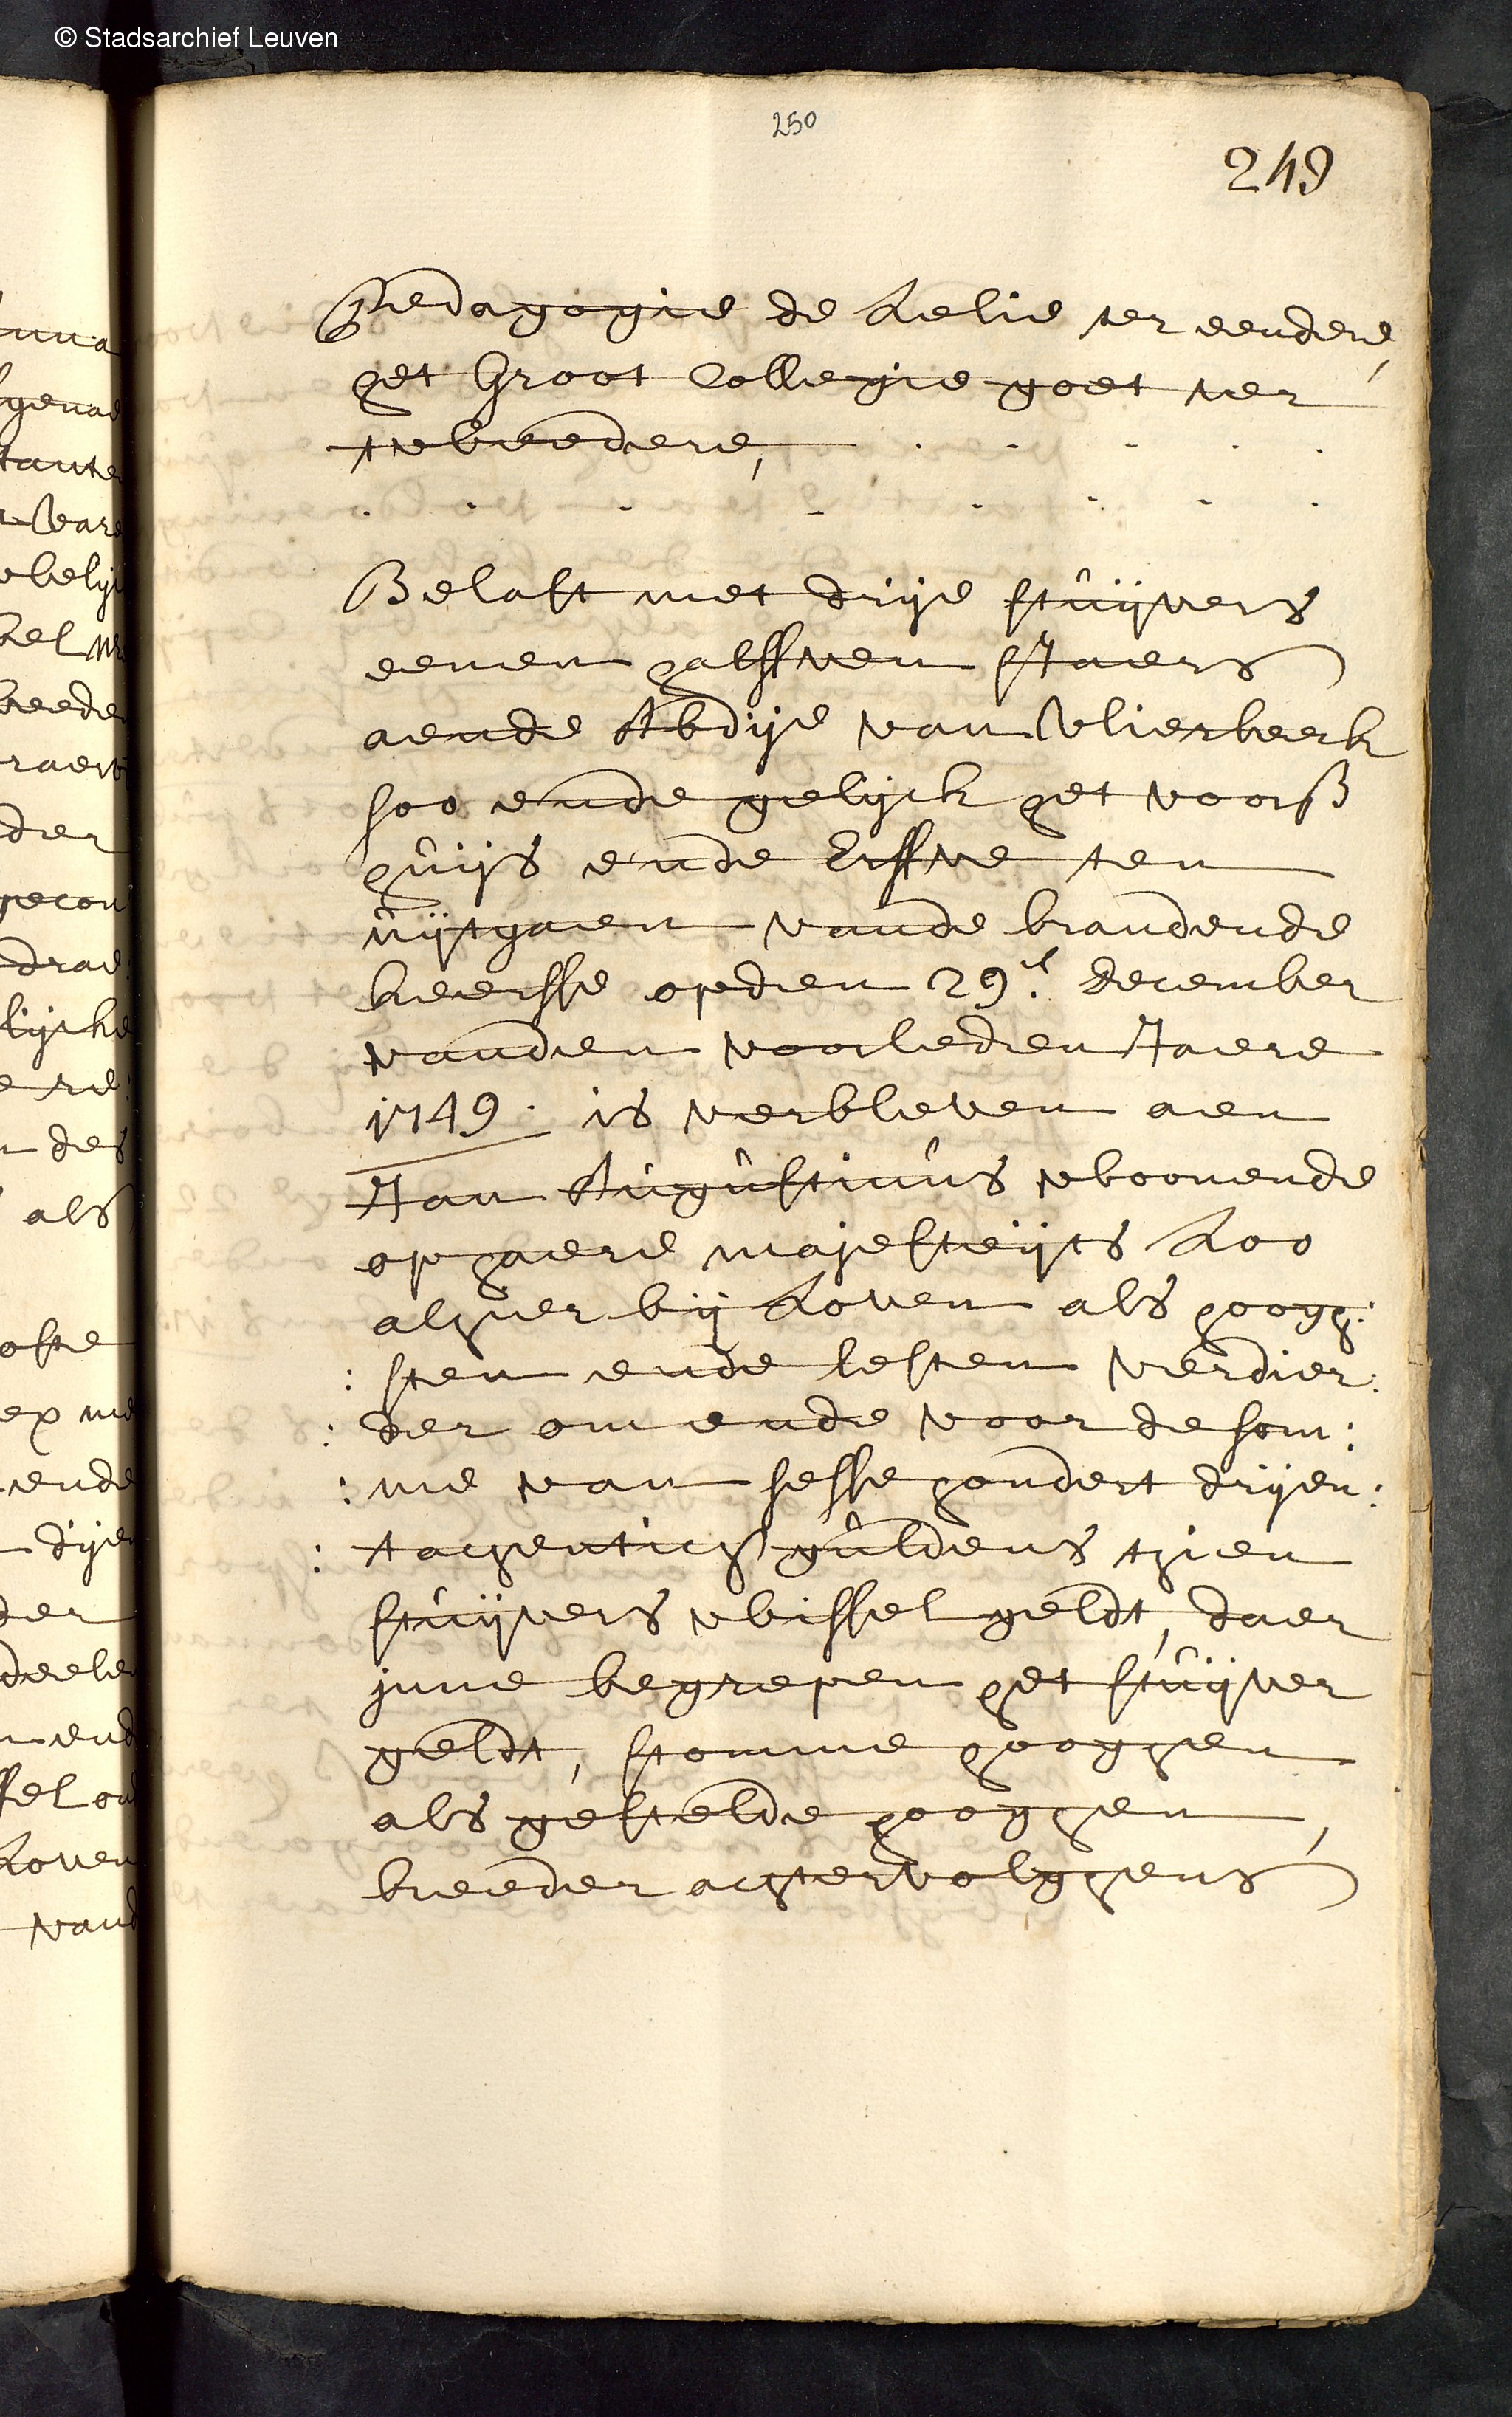 © Stadsarchief Leuven
250
249
Pedagogie de Lelie ter eendere,
het Groot Collegie goet ter
tweedere, . . . . .
. . . . . . . .
Belast met drije stuijvers
eenen halffven sJaers
aende Abdije van Vlierbeeck
soo ende gelijck het voors
huijs ende Erffve ten
uijtgaen vande brandende
keersse opden 29.e december
vanden voorleden Jaere
1749. is verbleven aen
Jan Augustinus woonende
op haere majesteijts Loo
alhier bij Loven als hoogh:
: sten ende lesten verdier:
: der om ende voor de som:
: me van sesse hondert drijen:
: tachentich guldens thien
stuijvers wissel geldt, daer
inne begrepen het stuijver
geldt, stomme hooghen
als gestelde hooghen,
breeder achtervolghens
nna
genae
tante
Vare
welij
kel
beede
raev
der
gecon
drae:
lijcke
e re:
n des
als
ofte
ex me
ende
dije
der
deele
end
sel on
Loven
vand